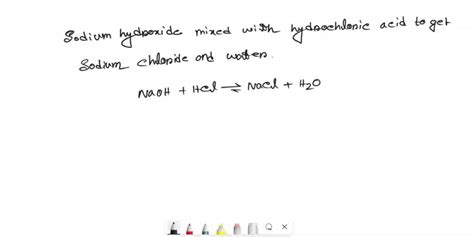 Sodium hydroxide mixed with hydrochloric acid to get
Sodium chloride and water.
NaOH + HCl ⇌ NaCl + H₂O